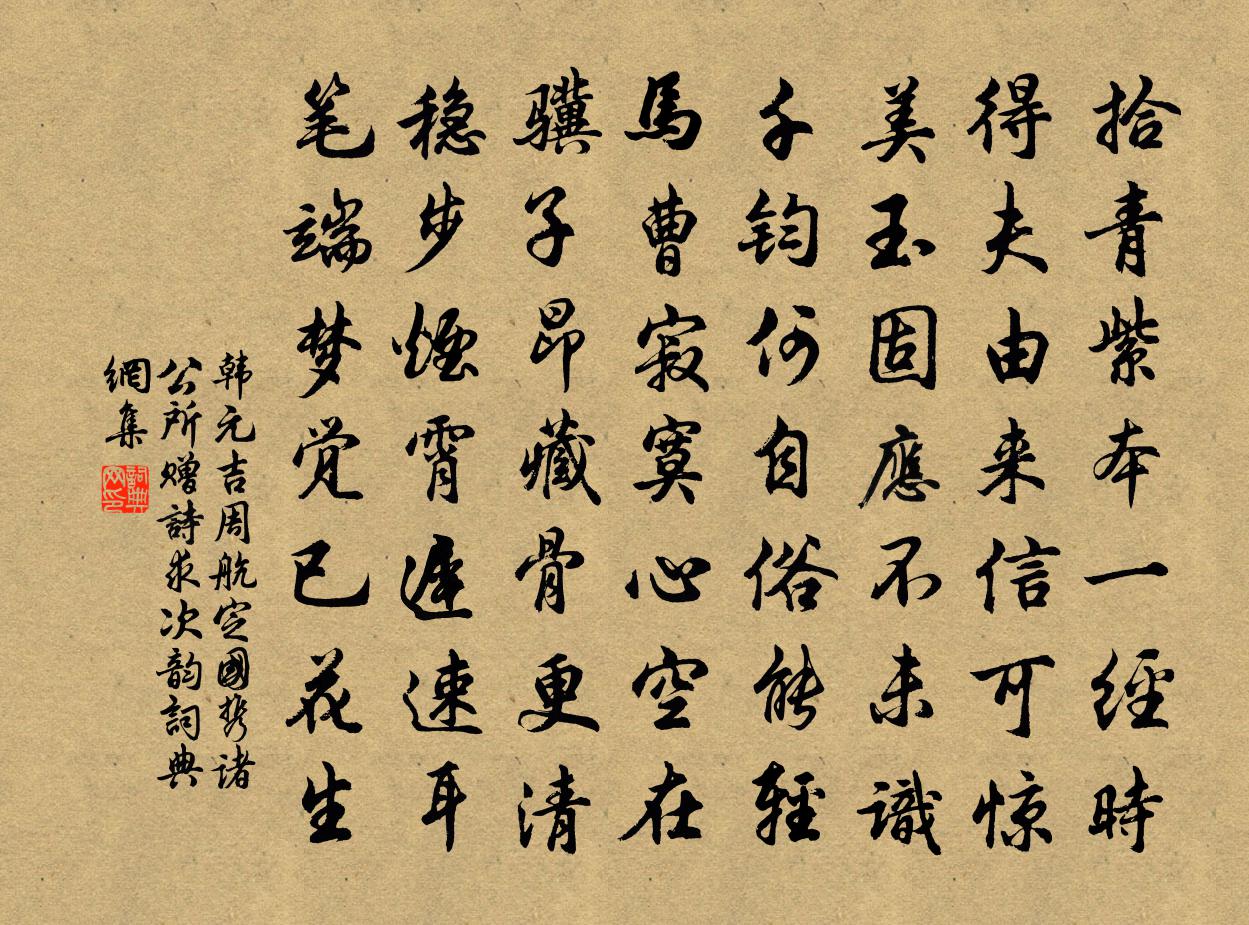 拾青紫本一經時
得夫由来信可惊
美玉固應不未識
千钧何自俗能輕
馬曹寂寞心空在
骥子昂藏骨更清
稳步煙霄遲速耳
笔端梦觉已花生
韩元吉周航定國携諸
公所赠詩求次韵詞典
網集
詞典
网印